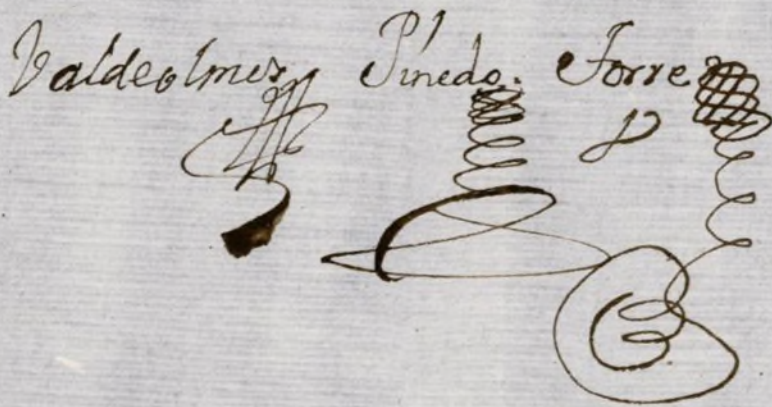 Valdeolmos Pinedo. Torre